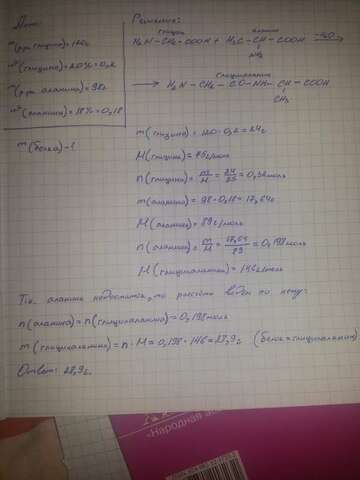 Дано:
m(р-ра глицина)=120г
w(глицина)=20%=0,2
m(р-ра аланина)=98г
w(аланина)=18%=0,18
m(белка)-?
Решение:
глицин аланин
H₂N-CH₂-COOH + H₂C-CH-COOH -H₂O→
NH₂
глицилаланин
→ H₂N-CH₂-CO-NH-CH-COOH
CH₃
m(глицина)=120·0,2=24г
M(глицина)=75г/моль
n(глицина)=m/M=24/75=0,32моль
m(аланина)=98·0,18=17,64г
M(аланина)=89г/моль
n(аланина)=m/M=17,64/89=0,198моль
M(глицилаланина)=146г/моль
Т.к. аланин недостаток, то расчёт ведём по нему:
n(аланина)=n(глицилаланина)=0,198моль
m(глицилаланина)=n·M=0,198·146=28,9г (белка=глицилаланин)
Ответ: 28,9г.
«Народная ас